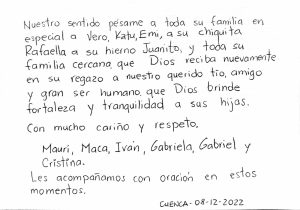 Nuestro sentido pésame a toda su familia en
especial a Vero, Katu, Emi, a su chiquita
Rafaella a su hierno Juanito, y toda su
familia cercana, que Dios reciba nuevamente
en su regazo a nuestro querido tío, amigo
y gran ser humano, que Dios brinde
fortaleza y tranquilidad a sus hijas.
Con mucho cariño y respeto.
Mauri, Maca, Iván, Gabriela, Gabriel y
Cristina.
Les acompañamos con oración en estos
momentos.
CUENCA - 08-12-2022